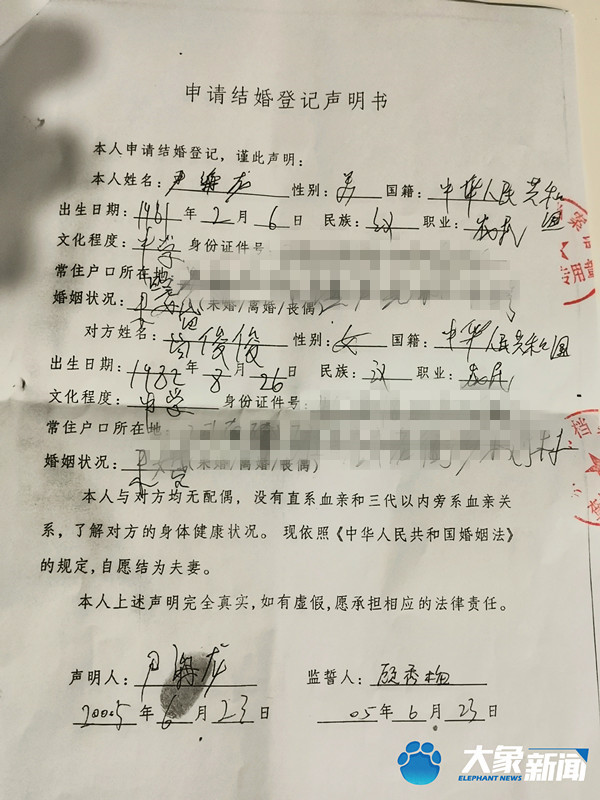 申请结婚登记声明书
本人申请结婚登记，谨此声明：
本人姓名：尹 龙 性别：男 国籍：中华人民共和国
出生日期：1981年2月6日 民族：汉 职业：农民
文化程度：中学 身份证件号
常住户口所在地
婚姻状况：(未婚/离婚/丧偶)
对方姓名：俊俊 性别：女 国籍：中华人民共和国
出生日期：1982年8月26日 民族：汉 职业：农民
文化程度：中学 身份证件号：
常住户口所在地： 村
婚姻状况：(未婚/离婚/丧偶)
本人与对方均无配偶，没有直系血亲和三代以内旁系血亲关
系，了解对方的身体健康状况。现依照《中华人民共和国婚姻法》
的规定，自愿结为夫妻。
本人上述声明完全真实，如有虚假，愿承担相应的法律责任。
声明人：尹 龙 监誓人：顾秀梅
2005年6月23日 05年6月23日
专用章
档
大象新闻
ELEPHANT NEWS